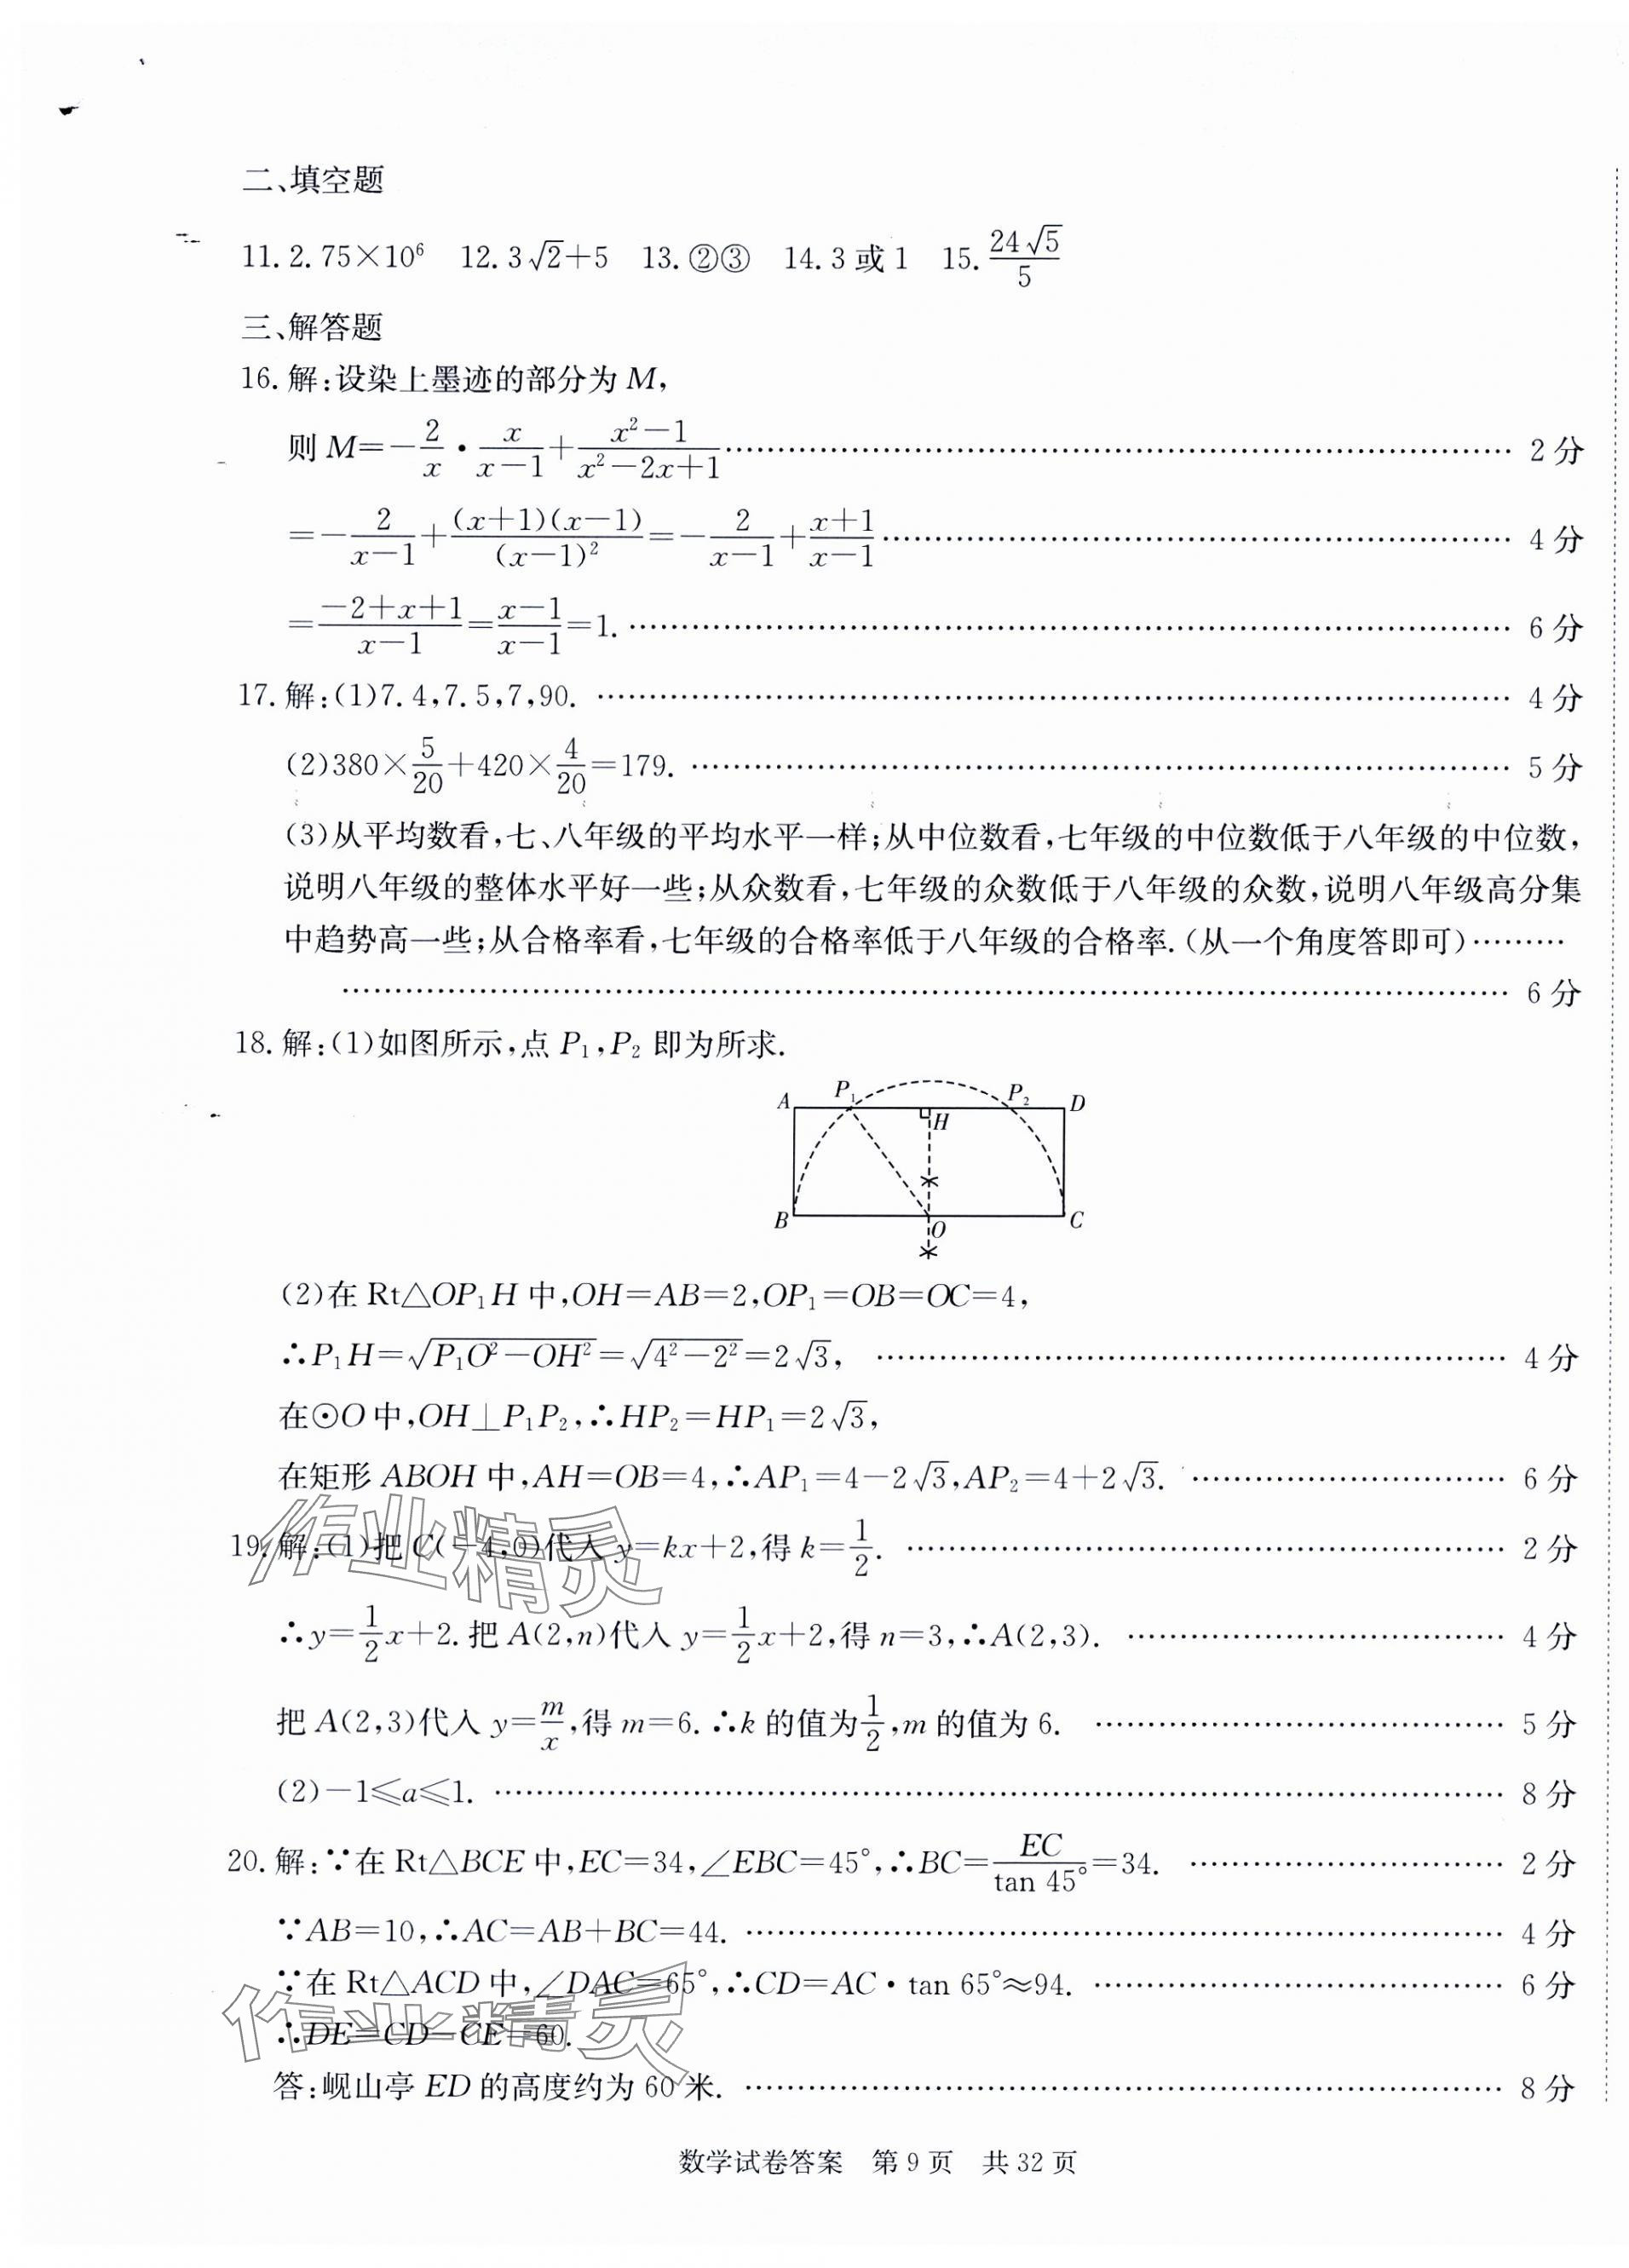 二、填空题
11. 2.75×10⁶ 12. 3√2+5 13. ②③ 14. 3或1 15. 24√5/5
三、解答题
16. 解:设染上墨迹的部分为 M,
则 M=-2/x·x/(x-1)+(x²-1)/(x²-2x+1)………… 2分
=-2/(x-1)+(x+1)(x-1)/(x-1)²=-2/(x-1)+(x+1)/(x-1)………… 4分
=(-2+x+1)/(x-1)=(x-1)/(x-1)=1. ………… 6分
17. 解:(1)7.4,7.5,7,90. ………… 4分
(2)380×5/20+420×4/20=179. ………… 5分
(3)从平均数看,七、八年级的平均水平一样;从中位数看,七年级的中位数低于八年级的中位数,
说明八年级的整体水平好一些;从众数看,七年级的众数低于八年级的众数,说明八年级高分集
中趋势高一些;从合格率看,七年级的合格率低于八年级的合格率.(从一个角度答即可)………
………… 6分
18. 解:(1)如图所示,点 P₁,P₂ 即为所求.
A P₁ H P₂ D
B O C
(2)在 Rt△OP₁H 中,OH=AB=2,OP₁=OB=OC=4,
∴P₁H=√(P₁O²-OH²)=√(4²-2²)=2√3, ………… 4分
在⊙O中,OH⊥P₁P₂,∴HP₂=HP₁=2√3,
在矩形 ABOH 中,AH=OB=4,∴AP₁=4-2√3,AP₂=4+2√3. ………… 6分
19. 解:(1)把 C(-4,0)代入 y=kx+2,得 k=1/2. ………… 2分
∴y=1/2x+2. 把 A(2,n)代入 y=1/2x+2,得 n=3,∴A(2,3). ………… 4分
把 A(2,3)代入 y=m/x,得 m=6. ∴k 的值为1/2,m 的值为 6. ………… 5分
(2)-1≤a≤1. ………… 8分
20. 解:∵在 Rt△BCE 中,EC=34,∠EBC=45°,∴BC=EC/tan 45°=34. ………… 2分
∵AB=10,∴AC=AB+BC=44. ………… 4分
∵在 Rt△ACD 中,∠DAC=65°,∴CD=AC·tan 65°≈94. ………… 6分
∴DE=CD-CE=60.
答:岘山亭 ED 的高度约为 60 米. ………… 8分
作业精灵
作业精灵
数学试卷答案 第9页 共32页